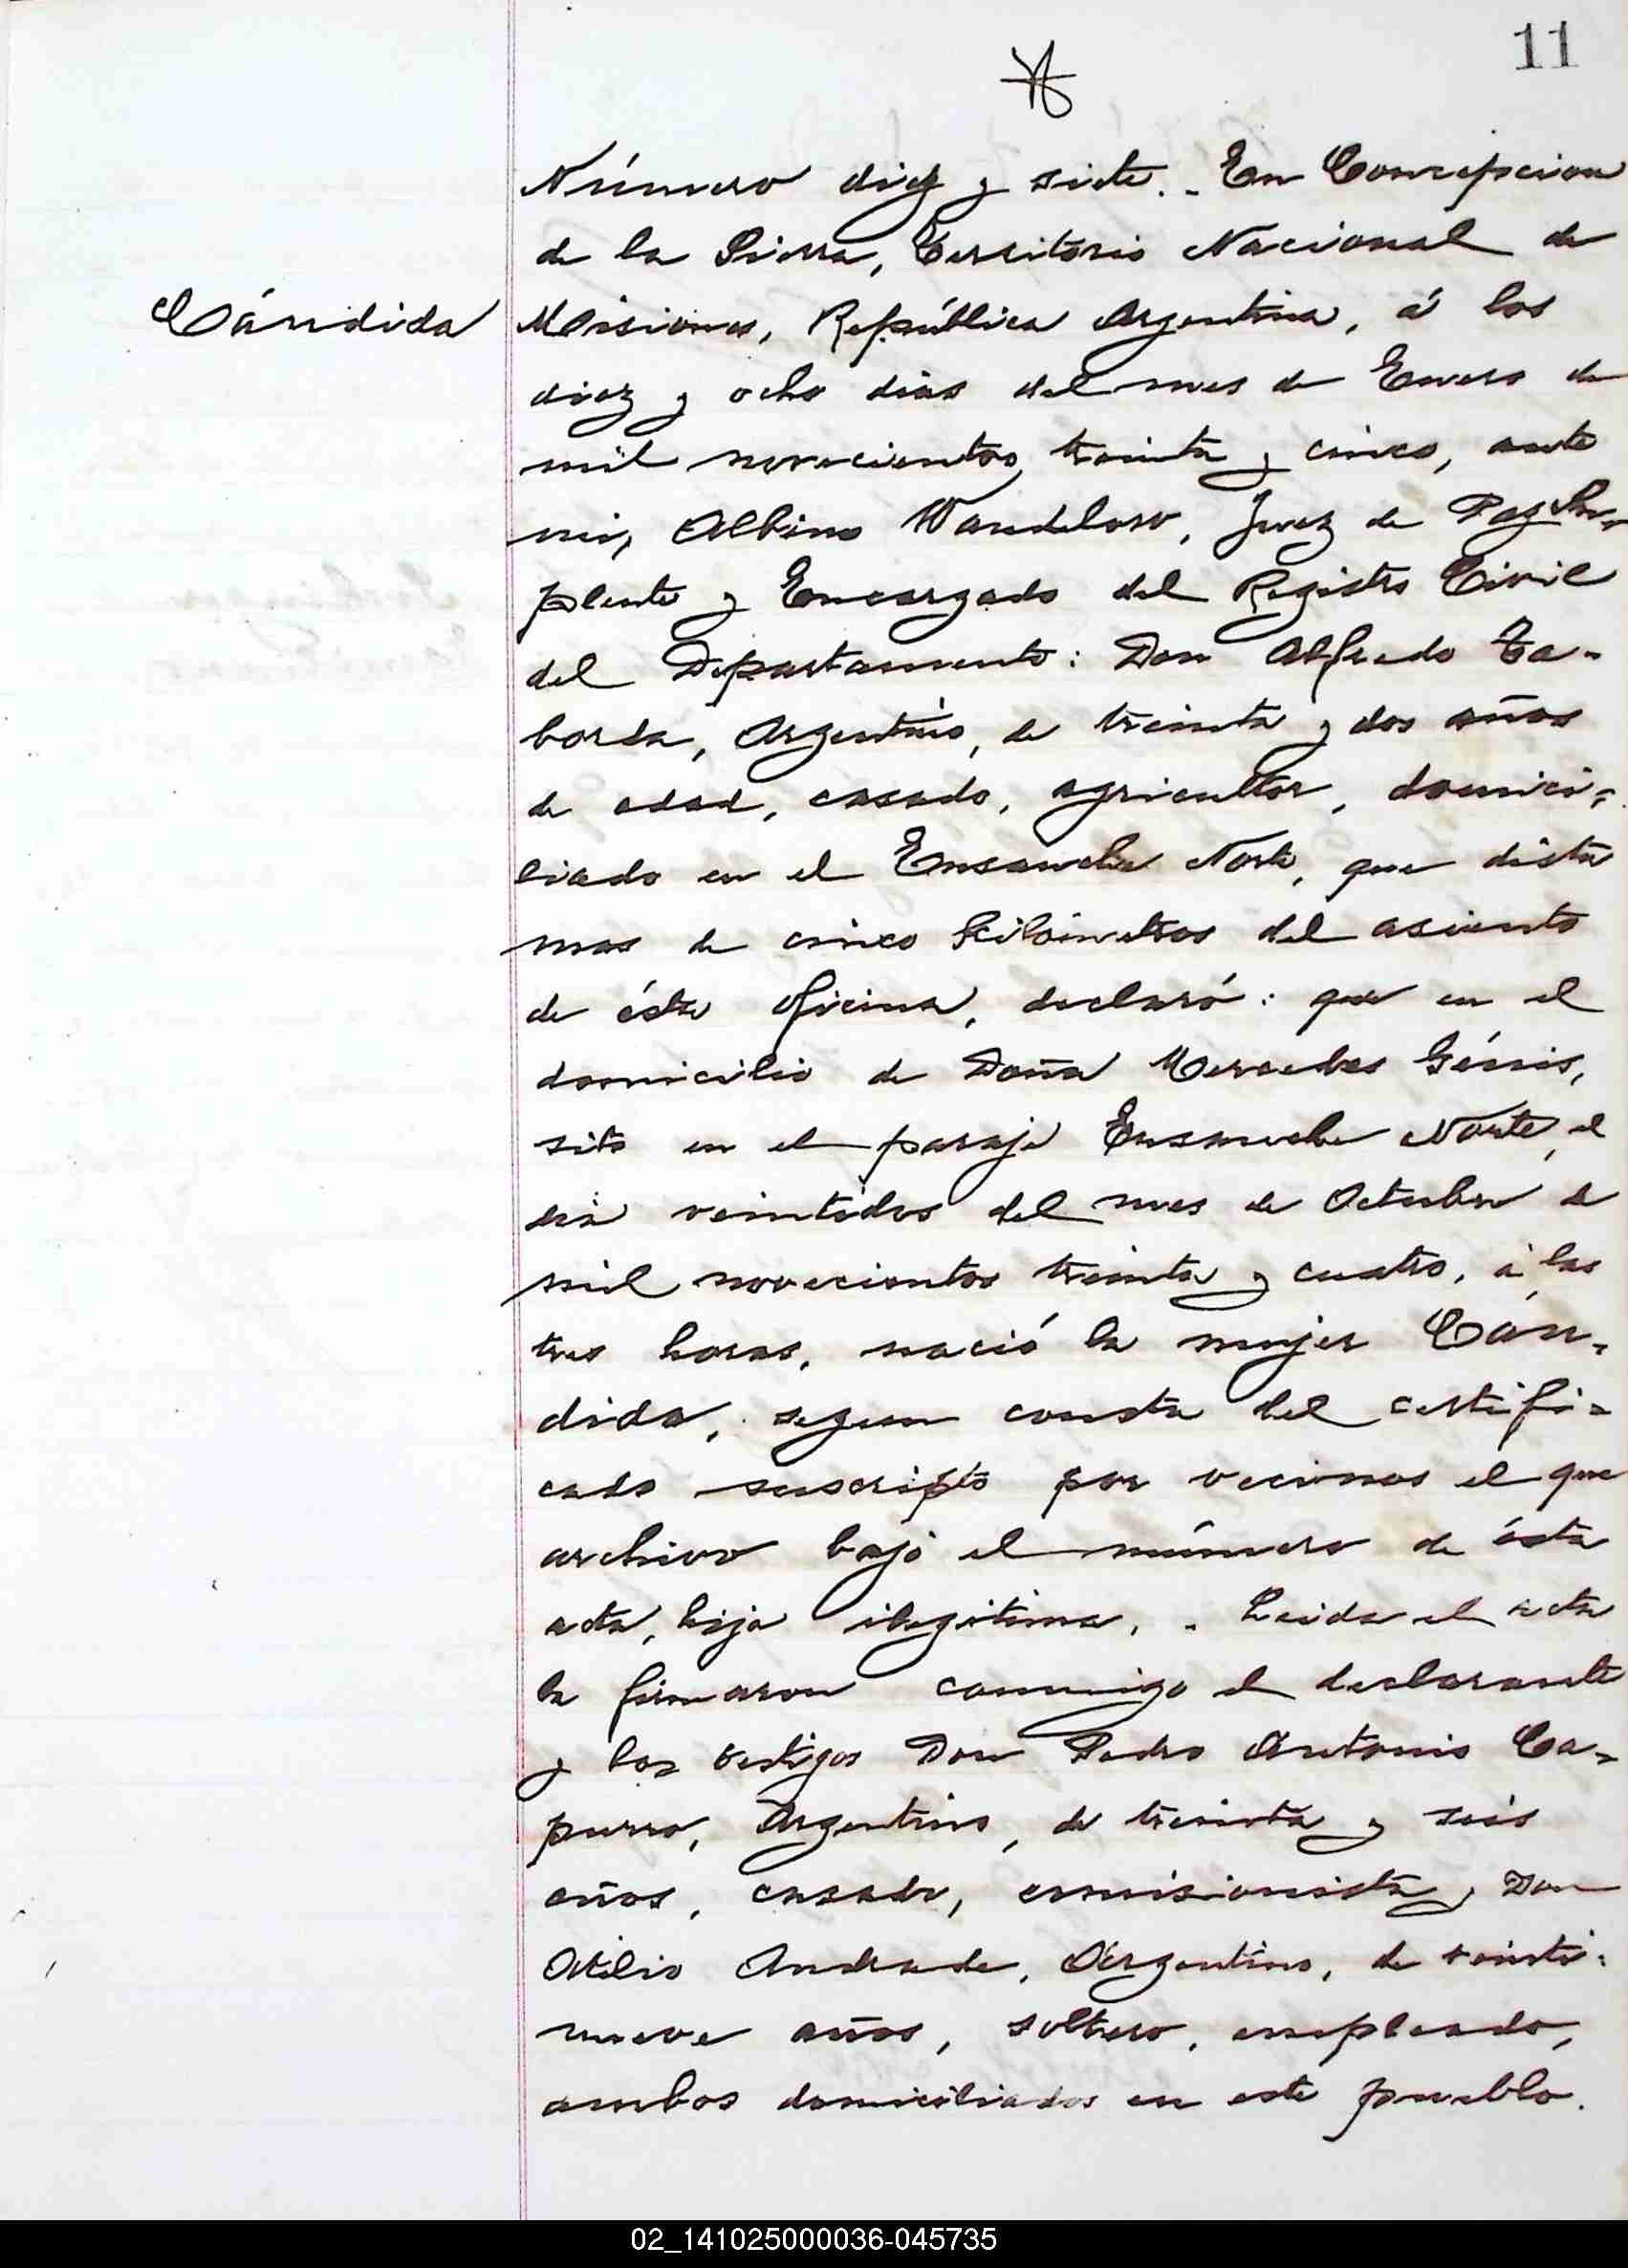 11
Número diez y siete. - En Concepcion
de la Sierra, Territorio Nacional de
Cándida
Misiones, República Argentina, á los
diez y ocho dias del mes de Enero de
mil novecientos treinta y cinco, ante
mi, Albino Wandeloro, Juez de Paz Su-
plente y Encargado del Registro Civil
del Departamento: Don Alfredo Ta-
borda, Argentino, de treinta y dos años
de edad, casado, agricultor, domici-
liado en el Ensanche Norte, que dista
mas de cinco kilómetros del asiento
de ésta oficina, declaró: que en el
domicilio de Doña Mercedes Génis,
sito en el paraje Ensanche Norte, el
dia veintidos del mes de Octubre de
mil novecientos treinta y cuatro, á las
tres horas, nació la mujer Cán-
dida, segun consta del certifi-
cado suscripto por vecinos el que
archivo bajo el número de ésta
acta, hija ilegitima. - Leida el acta
la firmaron conmigo el declarante
y los testigos Don Pedro Antonio Ca-
purro, Argentino, de treinta y seis
años, casado, comisionista y Don
Otilio Andrade, Argentino, de veinti-
nueve años, soltero, empleado,
ambos domiciliados en este pueblo.
02_141025000036-045735